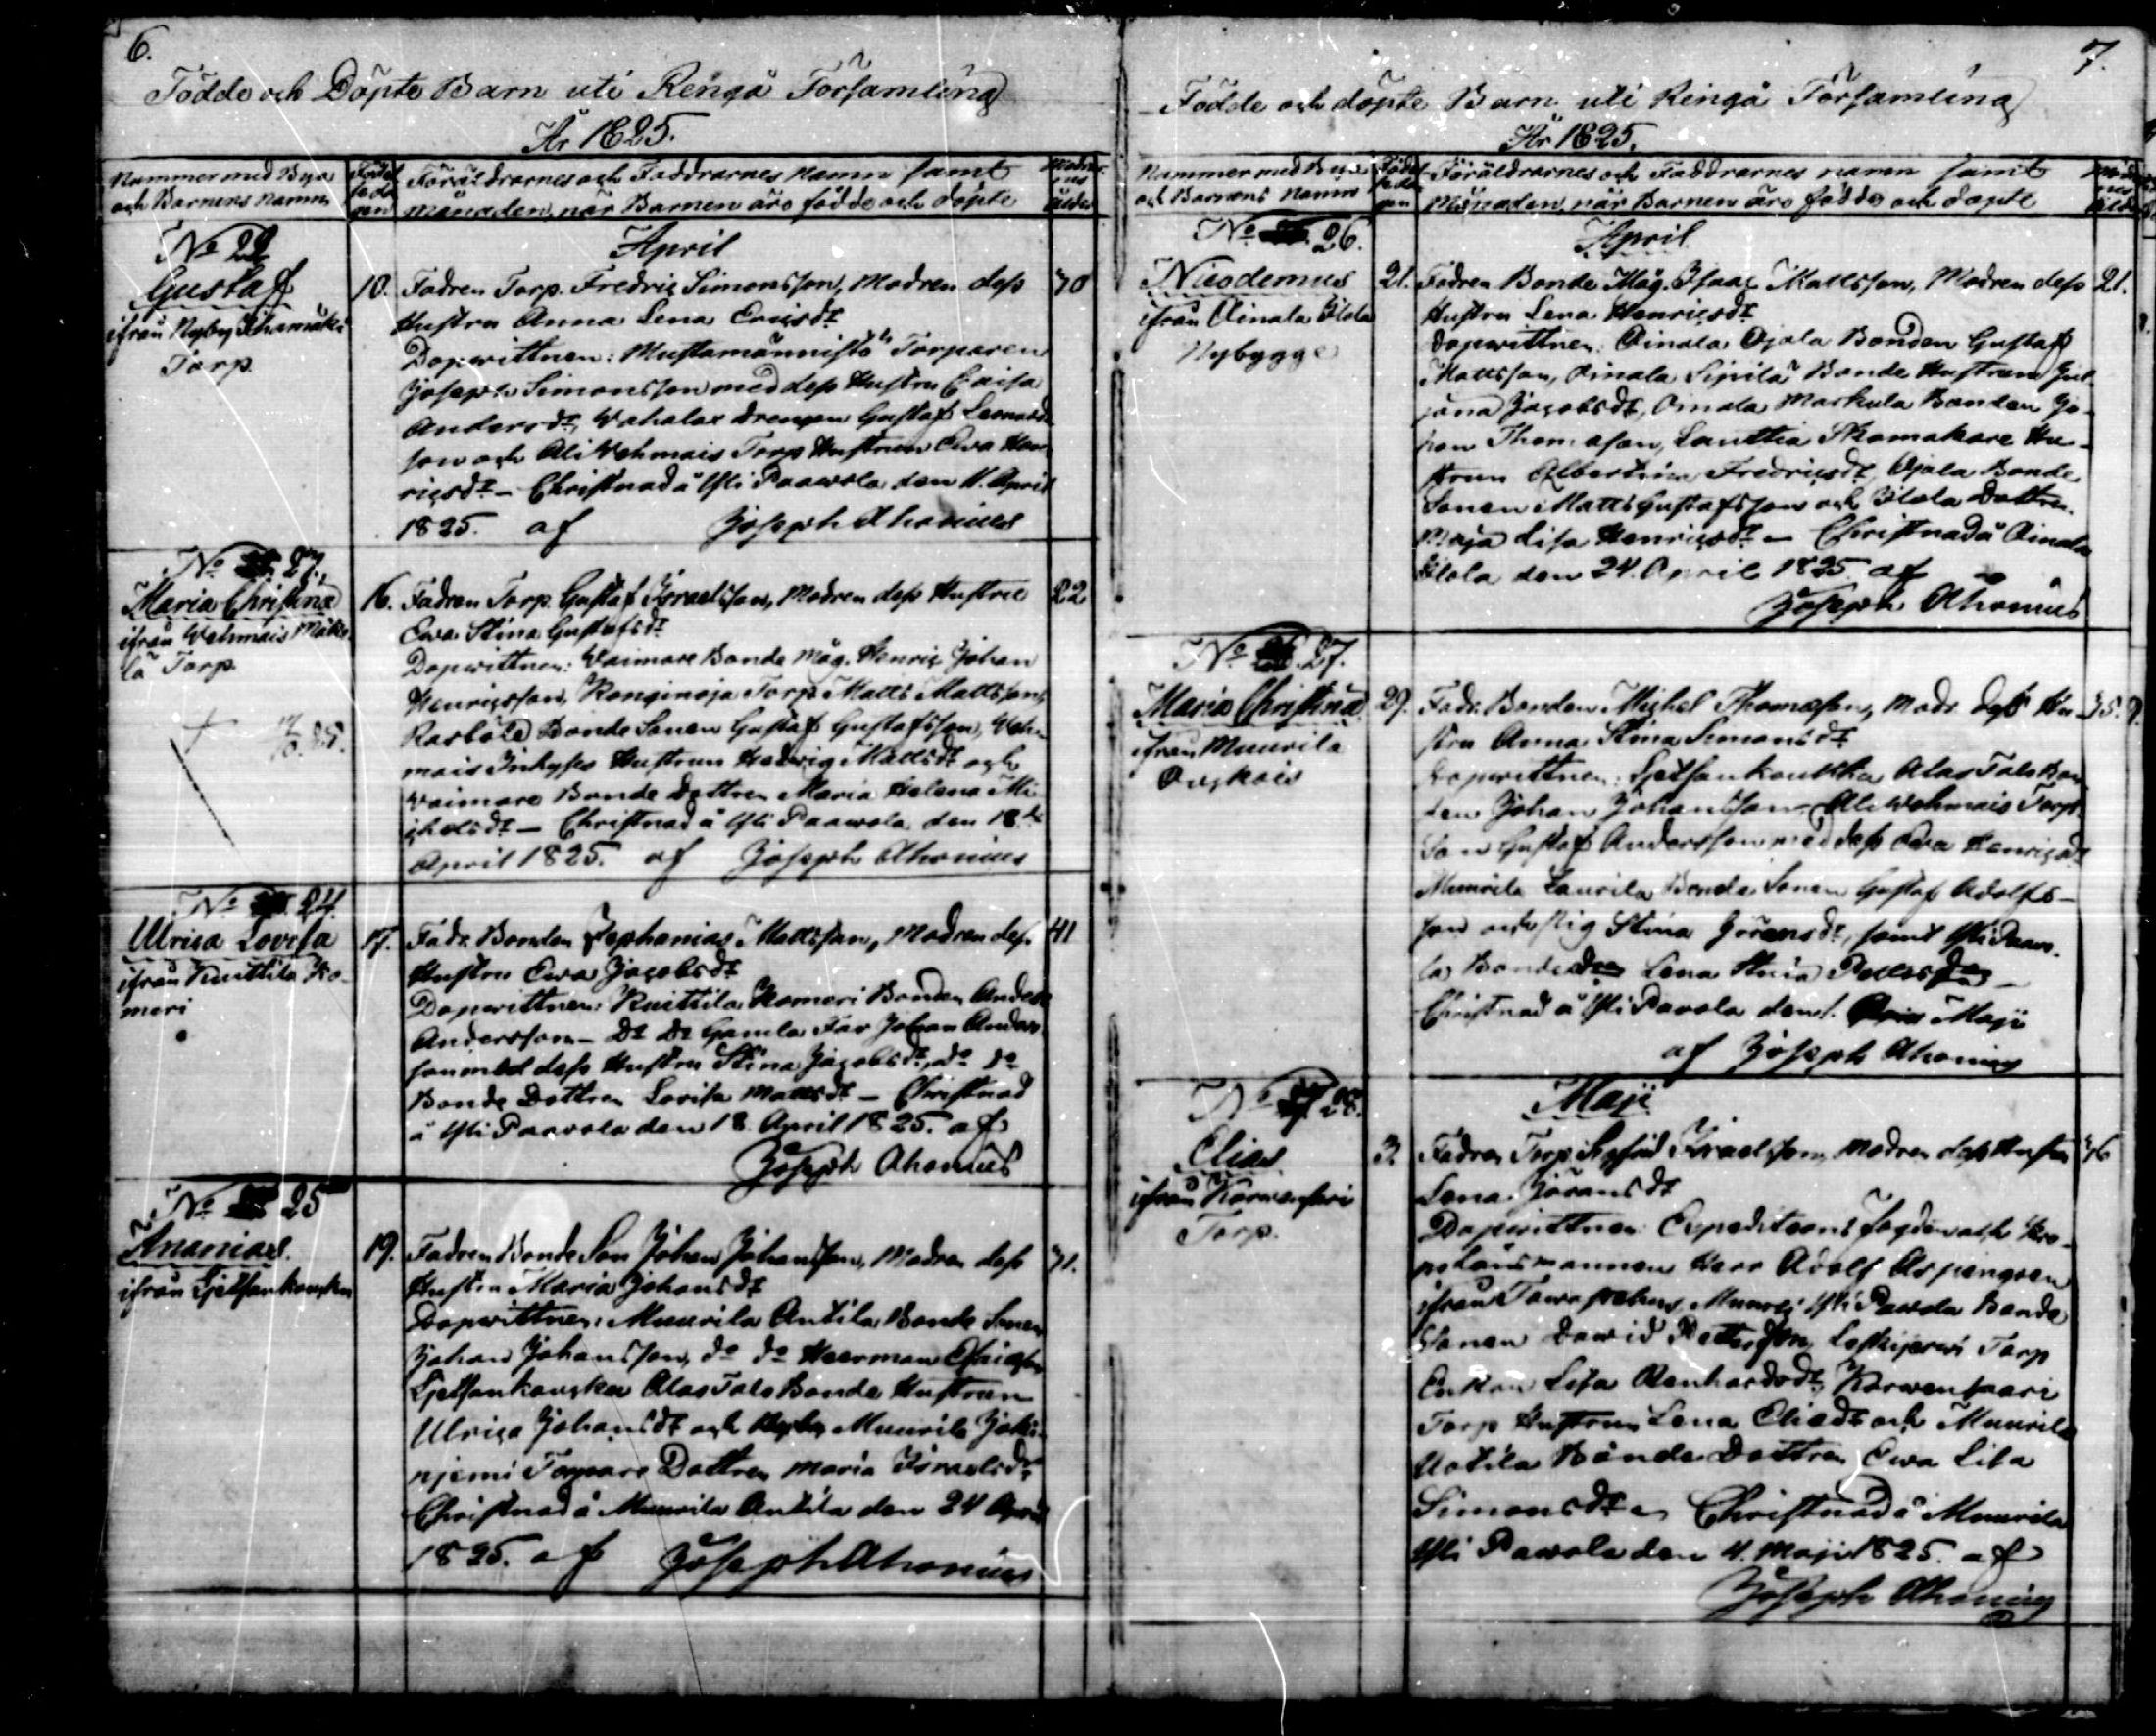 6.
Födde och Döpte Barn uti Rengå Församling
År 1825.
Nummer med Byars och Barnens Namn
Födel sedagen
Föräldrarnes och Faddrarnes Namn samt
månaden, när Barnen äro födde och döpte
Modrarnes ålder
April
No 22
Gustaf
ifrån Nyby
Torp.
10.
Fadren Torp. Fredric Simonsson, Modren dess
30
Hustru Anna Lena Ericsdr
Dopwittnen: Mustamännistö Torparen
Joseph Simonsson med dess Hustru Caisa
Andersdr, drengen Gustaf
son och Ali Wehmais Torp Hustrun Ewa Hen
ricsdr – Christnad å Yli Paawola den 11. April
1825. af Joseph Ahonius
No 23.
Maria Christina
ifrån Wehmais Mäke
lä Torp.
16.
Fadren Torp. Gustaf Israelsson, Modren dess Hustru
22
Ewa Stina Gustafsdr
Dopwittnen: Waimare Bonde Måg. Henric Johan
Henricsson, Torp. Matts Mattsson,
Bonde Sonen Gustaf Gustafsson, Weh
mais Inhyses Hustrun Hedwig Mattsdr och
Waimare Bonde Dottren Maria Helena Mi
chelsdr – Christnad å Yli Paawola den 18de
April 1825. af Joseph Ahonius
No 24.
Ulrica Lovisa
ifrån Knuttila Ko
meri
17.
Fadr. Bonden Zephanias Mattsson, Modren dess
41
Hustru Ewa Jacobsdr
Dopwittnen: Knuttila Komeri Bonden Anders
Andersson – Do Do Gamla Far Johan Anders
son med dess Hustru Stina Jacobsdr, do do
Bonde Dottren Lovisa Mattsdr – Christnad
å Yli Paavola den 18 April 1825. af
Joseph Ahonius
No 25
Ananias.
ifrån
19.
Fadren Bonde Son Johan Johansson, Modren dess
31.
Hustru Maria Johansdr
Dopwittnen: Muurila Antila Bonde Sonen
Johan Johansson, do do Heerman
Alastalo Bonde Hustrun
Ulrica Johansdr och Muurila
Torpare Dottren Maria Israelsdr
Christnad å Muurila Antila den 24 April
1825. af Joseph Ahonius
7.
Födde och döpte Barn uti Rengå Församling
År 1825.
Nummer med Byars och Barnens Namn
Födel sedagen
Föräldrarnes och Faddrarnes namn samt
Månaden, när Barnen äro födde och döpte
April
No 26.
Nicodemus
ifrån Oinala Ylola
Nybygge
21.
Fadren Bonde Måg. Isaac Mattsson, Modren dess
21.
Hustru Lena Henricsdr
Dopwittnen: Oinala Ojala Bonden Gustaf
Mattsson, Oinala Sipilä Bonde Hustrun Jul
jana Jacobsdr, Oinala Markula Bonden Jo
han Thomasson, Lauttia Skomakare Hu
strun Albertina Fredricsdr, Ojala Bonde
Sonen Matts Gustafsson och Ylola Dottren
Maja Lisa Henricsdr – Christnad å Oinala
Ylola den 24. April 1825 af
Joseph Ahonius
No 27.
Maria Christina
ifrån Muurila
29.
Fadr. Bonden Michel Thomasson, Modr. dess Hu
35.
stru Anna Stina Simonsdr
Dopwittnen: Alastalo Bon
den Johan Johansson – Ali Wehmais Torp.
Son Gustaf Andersson med dess Ewa Henricsdr
Muurila Laurila Bonde Sonen Gustaf Adolfs
son och Pig Stina Göransdr, samt Yli Paavo
la Bonde Lena Stina
Christnad å Yli Pavola den 1. Maji
af Joseph Ahonius
Maji
No 28.
Elias
ifrån Korwensuri
Torp.
3.
Fadren Torp. Sigfrid Israelsson, Modren dess Hustru
36
Lena Göransdr
Dopwittnen: Expeditions Fogden och Kro
nolänsmannen Herr Adolf Aspengren
ifrån Tawastehus, Muurila Yli Pawola Bonde
Sonen Dawid Pettersson, Torp
Enkan Lisa Renhardsdr, Korwensaari
Torp Hustrun Lena Eliedr och Muurila
Uotila Bonde Dottren Ewa Lisa
Simonsdr – Christnad å Muurila
Yli Pawola den 4. Maji 1825. af
Joseph Ahonius